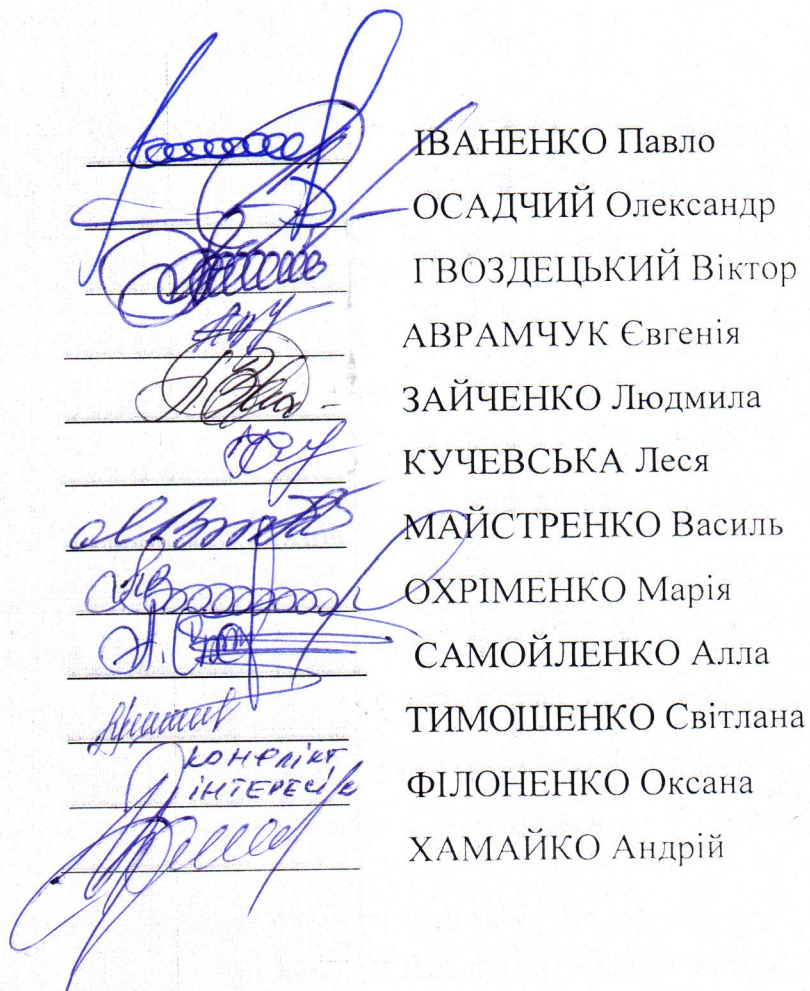 ІВАНЕНКО Павло
ОСАДЧИЙ Олександр
ГВОЗДЕЦЬКИЙ Віктор
АВРАМЧУК Євгенія
ЗАЙЧЕНКО Людмила
КУЧЕВСЬКА Леся
МАЙСТРЕНКО Василь
ОХРІМЕНКО Марія
САМОЙЛЕНКО Алла
ТИМОШЕНКО Світлана
конфлікт
інтересів ФІЛОНЕНКО Оксана
ХАМАЙКО Андрій